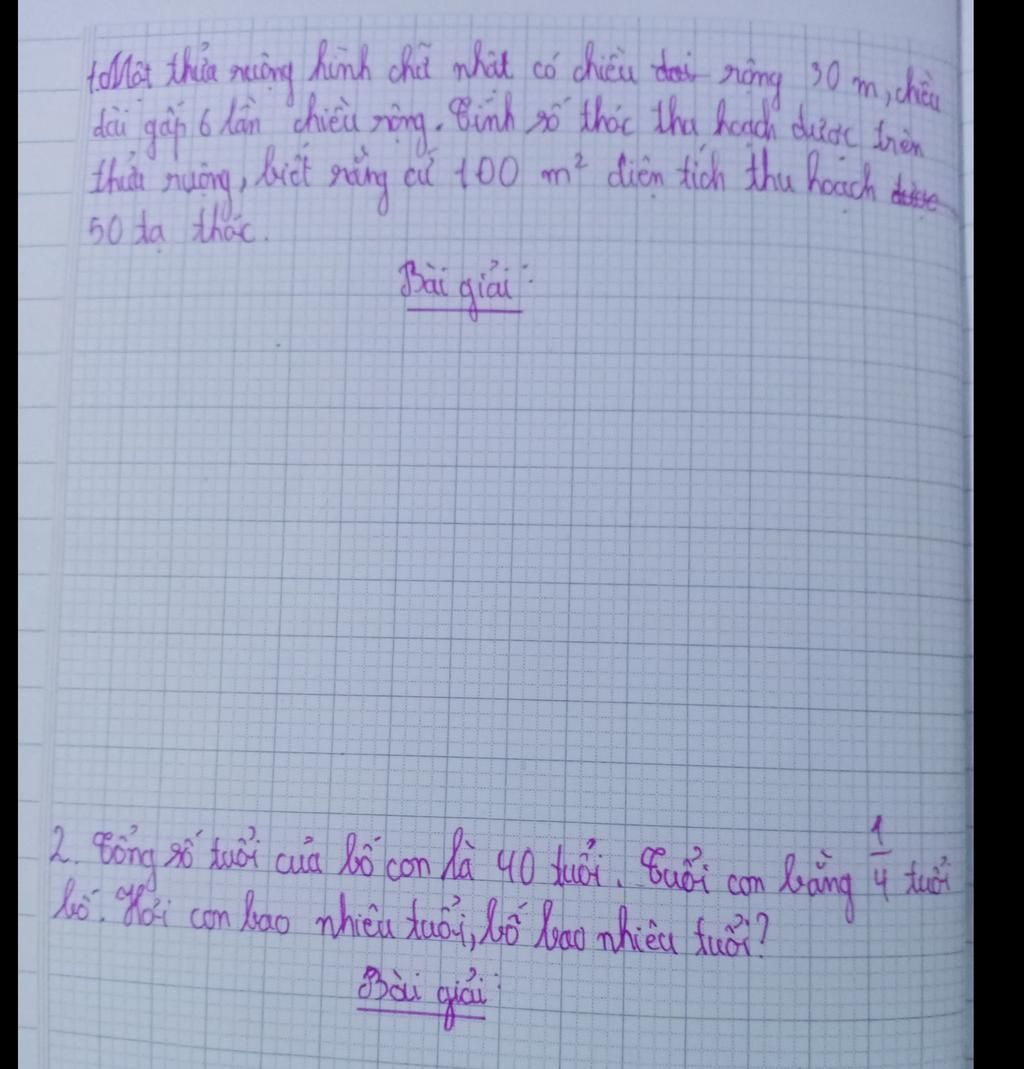 1. Một thửa ruộng hình chữ nhật có chiều dài rộng 30 m, chiều
dài gấp 6 lần chiều rộng. Tính số thóc thu hoạch được trên
thửa ruộng, biết rằng cứ 100 m² diện tích thu hoạch được
50 tạ thóc.
Bài giải:
2. Tổng số tuổi của bố con là 40 tuổi. Tuổi con bằng 1/4 tuổi
bố. Hỏi con bao nhiêu tuổi, bố bao nhiêu tuổi?
Bài giải: